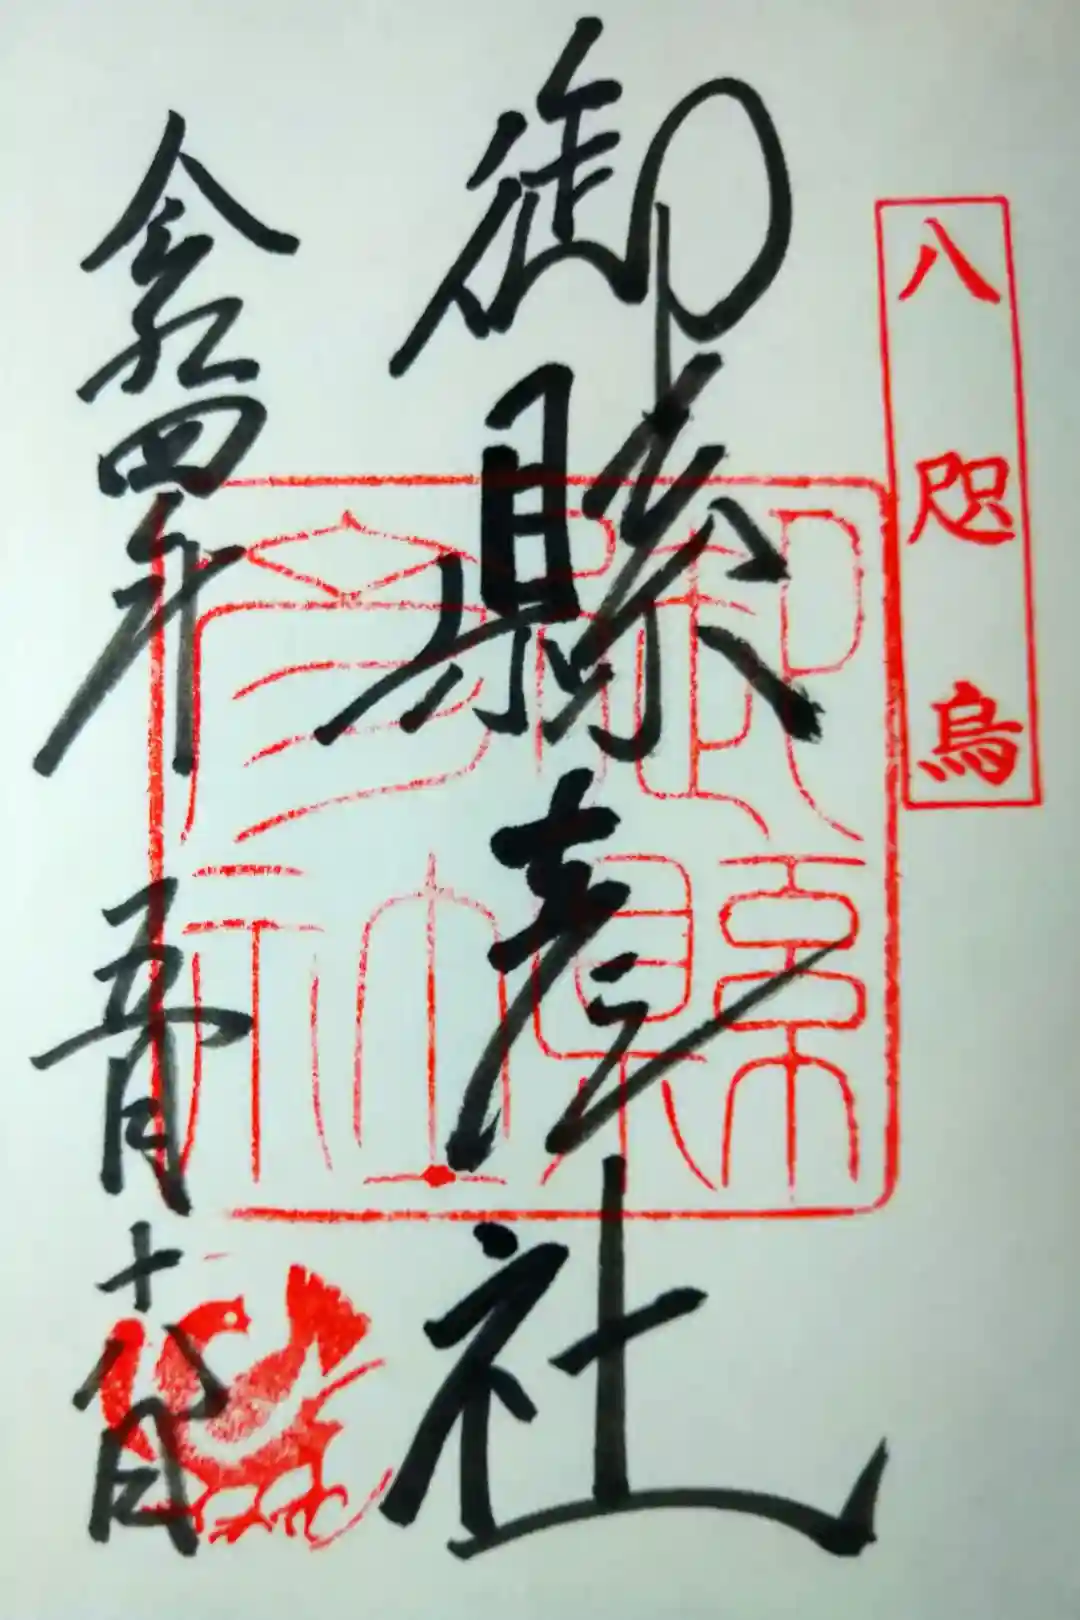 八咫烏
御縣彦社
御縣
彦社
令和四年五月十八日